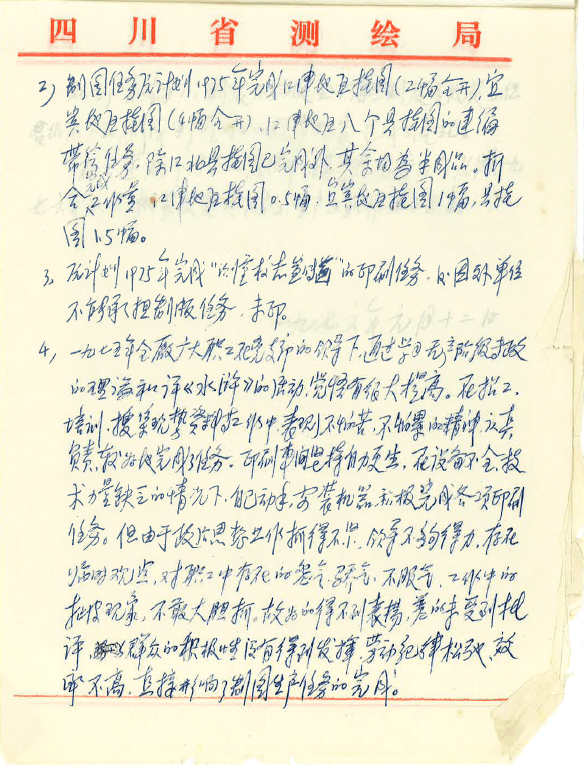 四川省测绘局
2) 制图任务原计划1975年完成江津地区挂图(2幅全开)、宜
宾地区挂图(4幅全开)、江津地区八个县挂图的连编
带绘任务,除江北县挂图已完成外,其余均为半成品。折
合完成工作量江津地区挂图0.5幅,宜宾地区挂图1幅,县挂
图1.5幅。
3、原计划1975年完成“测量标志宣传画”的印刷任务,因外单位
不能承担制版任务,未印。
4、一九七五年全厂广大职工在党支部的领导下,通过学习无产阶级专政
的理论和评《水浒》的活动,觉悟有很大提高。在招工、
培训、搜集现势资料等工作中,表现不怕苦、不怕累的精神,认真
负责,较好地完成了任务。印刷车间坚持自力更生,在设备不全、技
术力量缺乏的情况下,自己动手,安装机器,积极完成各项印刷
任务。但由于政治思想工作抓得不紧,领导不够得力,存在
临时观点,对职工中存在的怨气、骄气、不服气,工作中的
拖拉现象,不敢大胆抓。故好的得不到表扬,差的未受到批
评,群众的积极性没有得到发挥,劳动纪律松弛,效
率不高,直接影响了制图生产任务的完成。